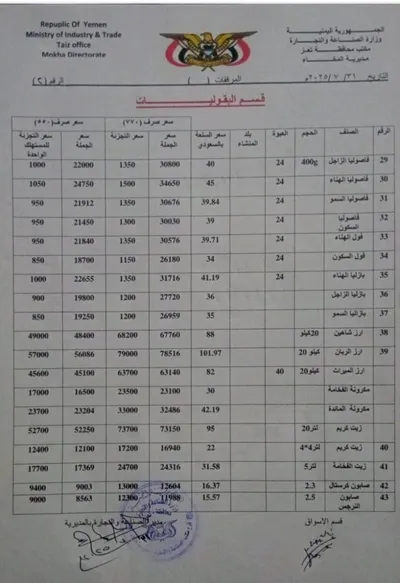 Repuplic Of Yemen
Ministry of Industry & Trade
Taiz office
Mokha Directorate
الجمـهورية اليمنية
وزارة الصناعة والتجارة
مكتب محافظة تعز
مديرية المخاء
التاريخ ٣١ / ٧ / ٢٠٢٥م المرفقات ( ) الرقم (٢)
قسم البقوليات
سعر صرف (٧٧٠) سعر صرف (٥٥٠)
الرقم الصنف الحجم العبوة بلد المنشاء سعر السلعة بالسعودي سعر الجملة سعر التجزئة سعر الجملة سعر التجزئة للمستهلك الواحدة
29 فاصوليا الزاجل 400g 24 40 30800 1350 22000 1000
30 فاصوليا الهناء 24 45 34650 1500 24750 1050
31 فاصوليا السمو 24 39.84 30676 1350 21912 950
32 فاصوليا السكون 24 39 30030 1300 21450 950
33 فول الهناء 24 39.71 30576 1350 21840 950
34 فول السكون 24 34 26180 1150 18700 850
35 بازليا الهناء 24 41.19 31716 1350 22655 1000
36 بازليا الزاجل 36 27720 1200 19800 900
37 بازاليا السمو 35 26959 1200 19250 850
38 ارز شاهين 20كيلو 88 67760 68200 48400 49000
39 ارز الريان كيلو 20 101.97 78516 79000 56086 57000
ارز الميراث كيلو20 40 82 63140 63700 45100 45600
مكرونة الفخامة 30 23100 23500 16500 17000
مكرونة المائدة 42.19 32486 33000 23204 23700
زيت كريم لتر20 95 73150 73700 52250 52700
40 زيت كريم لتر4*4 22 16940 17200 12100 12400
41 زيت الفخامة لتر5 31.58 24316 24700 17369 17700
42 صابون كرستال 2.3 16.37 12604 13000 9003 9400
43 صابون النرجس 2.5 15.57 11988 12300 8563 9000
قسم الاسواق
مدير الصناعة والتجارة بالمديرية